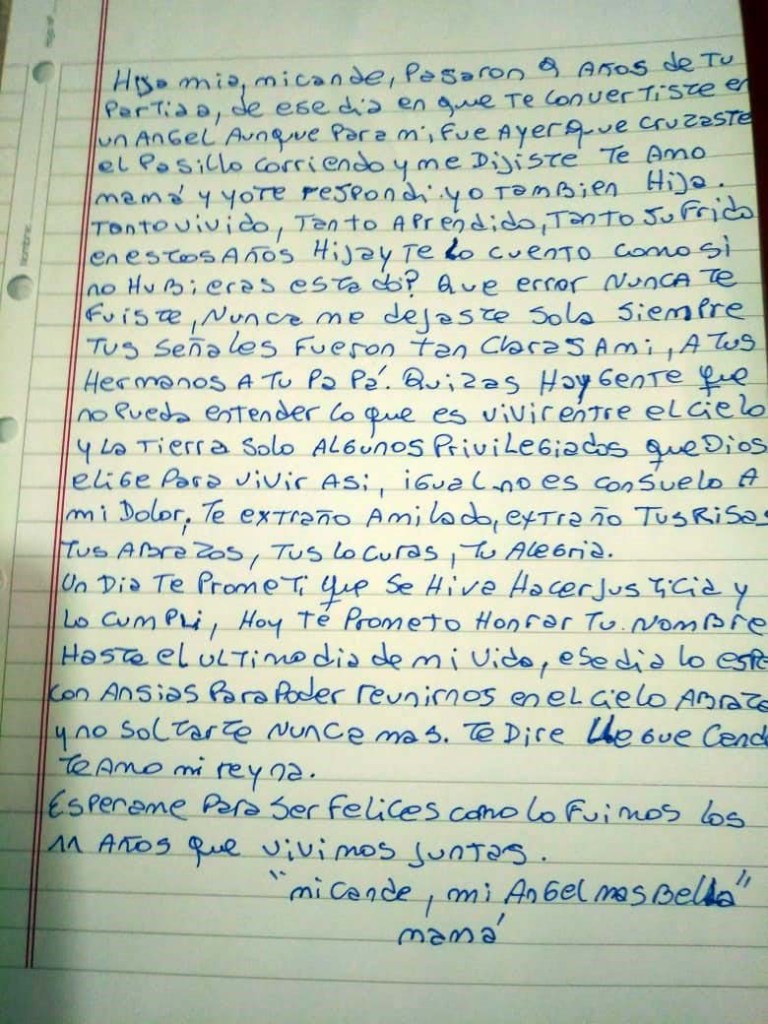 Hija mia, mi cande, Pasaron 9 Años de Tu
Partida, de ese dia en que Te convertiste en
un Angel Aunque Para mi, fue Ayer que cruzaste
el Pasillo corriendo y me Dijiste Te Amo
mamá y yo te respondi yo Tambien Hija.
Tanto vivido, Tanto Aprendido, Tanto Sufrido
en estos Años Hija y Te lo cuento como si
no Hubieras estado? Que error Nunca Te
Fuiste, Nunca me dejaste Sola Siempre
Tus Señales Fueron tan Claras A mi, A Tus
Hermanos A Tu PaPá. Quizas Hay Gente que
no Pueda entender lo que es vivir entre el cielo
y La Tierra Solo Algunos Privilegiados que Dios
elige Para vivir Asi, igual no es consuelo A
mi Dolor, Te extraño A mi lado, extraño Tus Risas
Tus Abrazos, Tus locuras, Tu Alegria.
Un Dia Te Prometi que Se Hiva Hacer Justicia y
Lo Cumpli, Hoy Te Prometo Honrar Tu Nombre
Hasta el ultimo dia de mi vida, ese dia lo espe
con Ansias Para Poder reunirnos en el cielo Abraza
y no Soltarte Nunca mas. Te Dire Llegue Cande
Te Amo mi reyna.
Esperame Para Ser Felices como lo Fuimos los
11 Años que vivimos juntas.
"mi cande, mi Angel mas Bella"
mamá